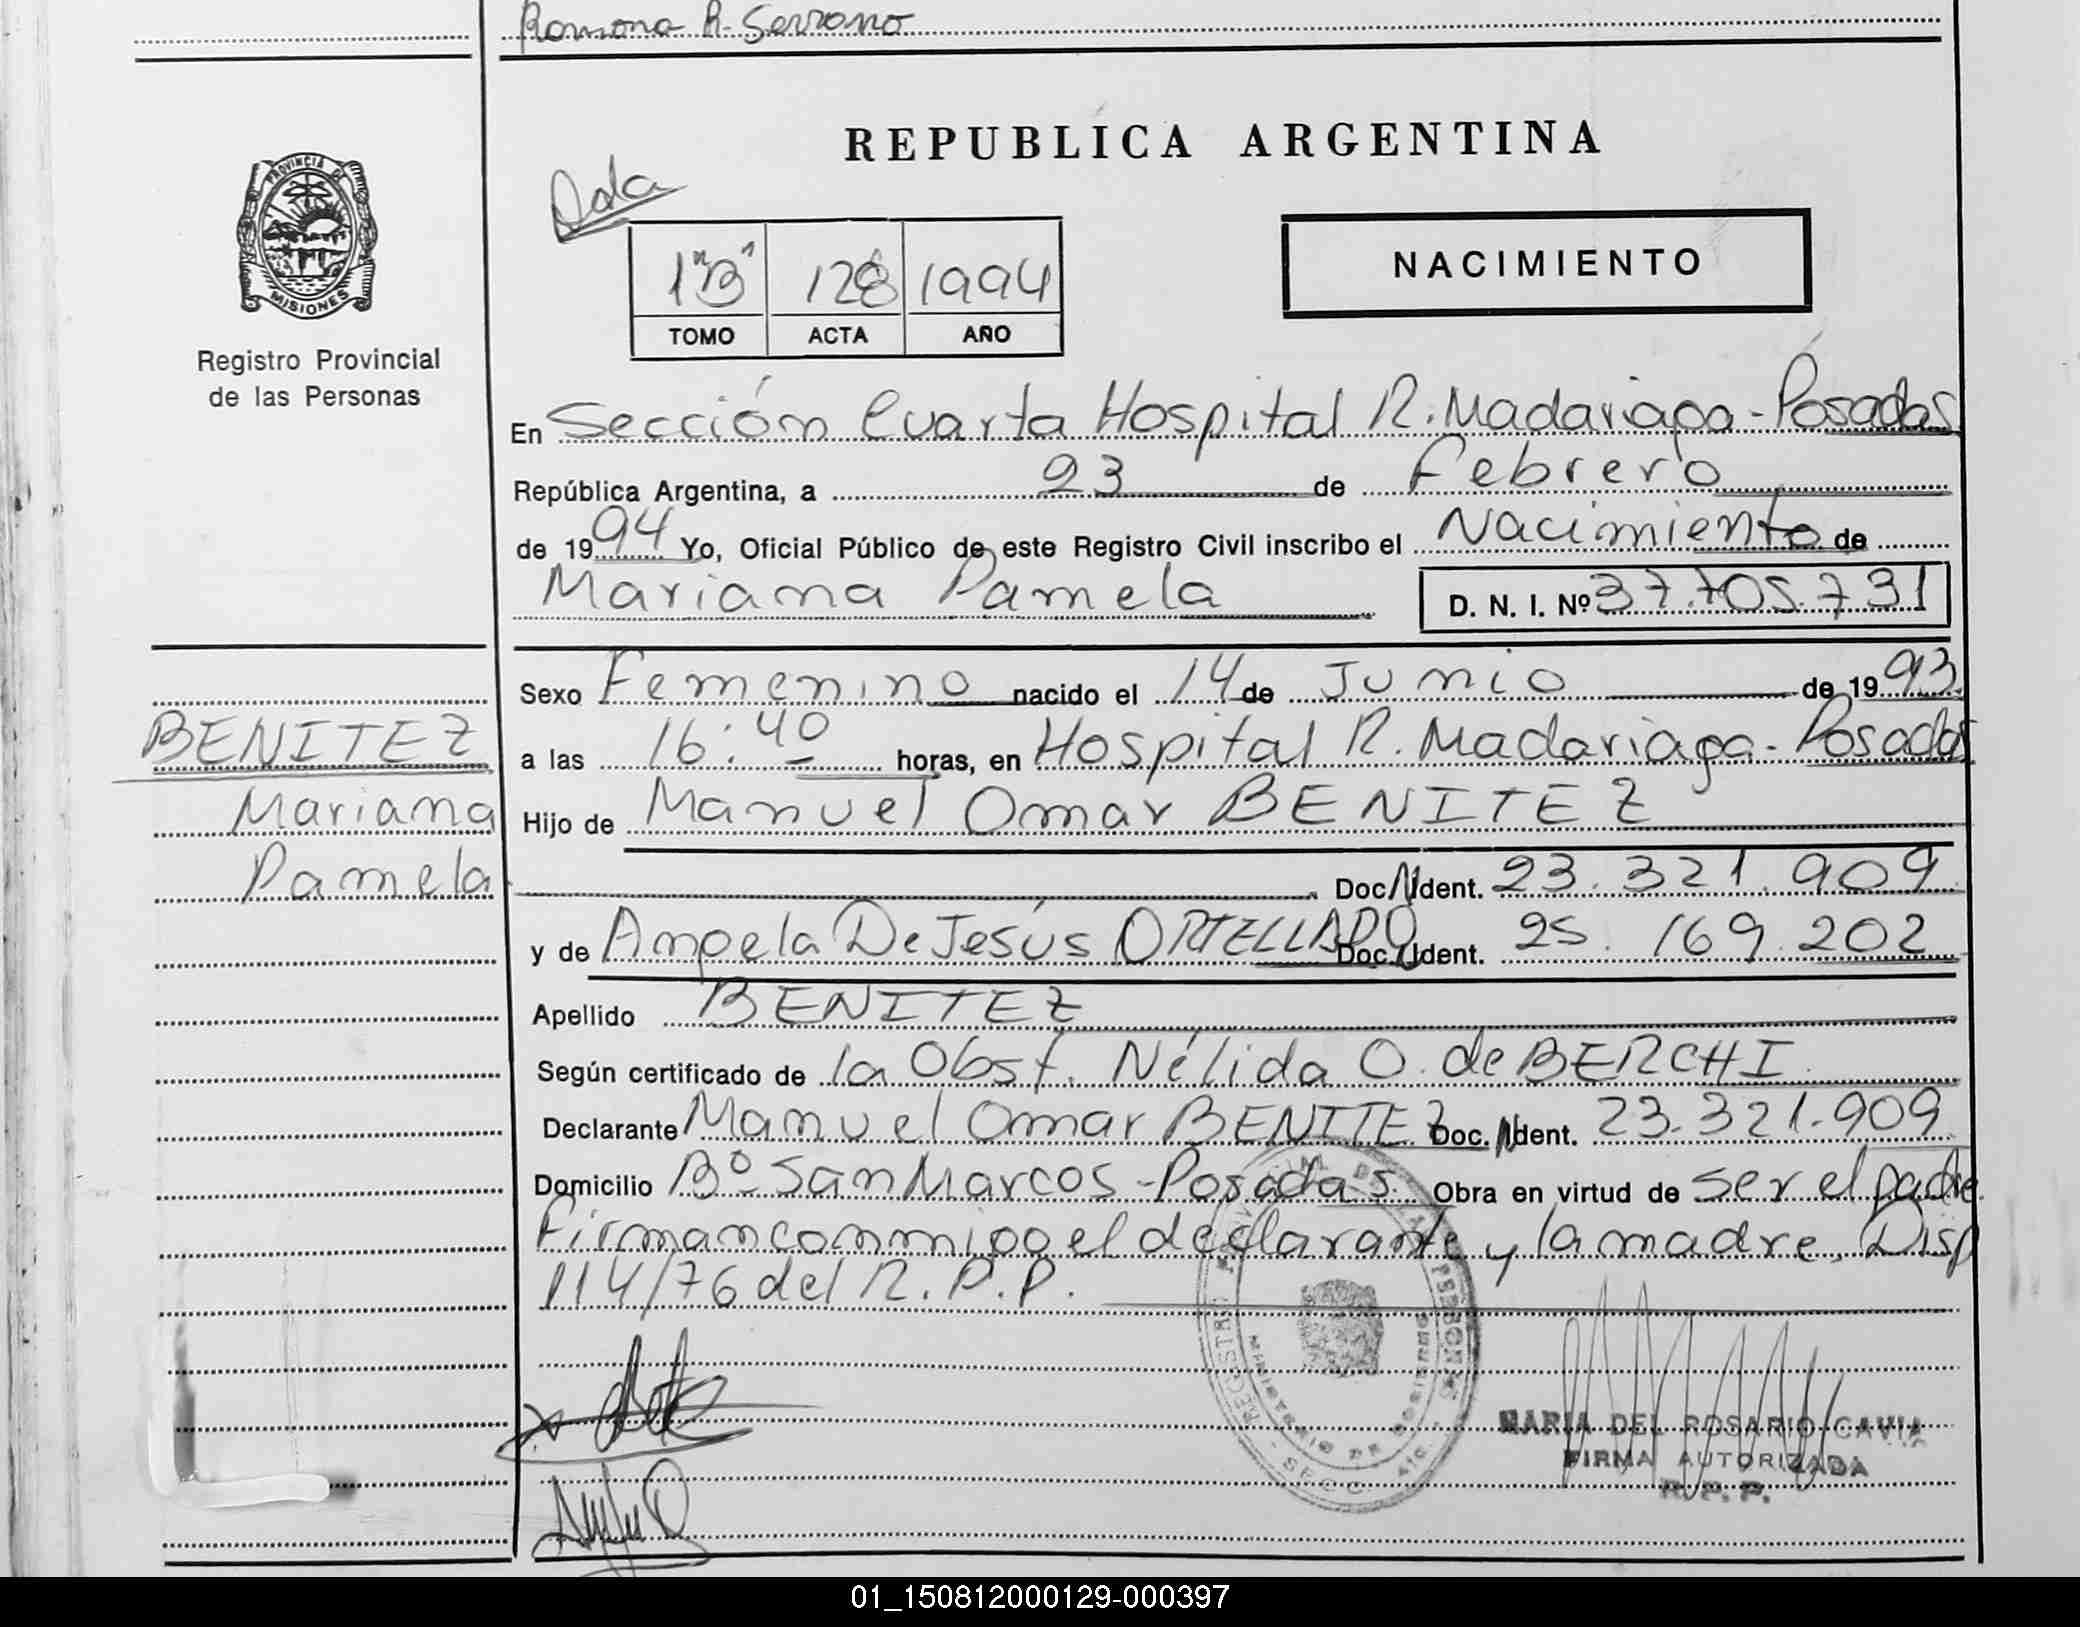 Ramona R. Serrano
REPUBLICA ARGENTINA
PROVINCIA DE
MISIONES
Registro Provincial
de las Personas
1"B" 128 1994
TOMO ACTA AÑO
NACIMIENTO
En Sección Cuarta Hospital R. Madariaga - Posadas
República Argentina, a 23 de Febrero
de 1994 Yo, Oficial Público de este Registro Civil inscribo el Nacimiento de
Mariana Pamela D. N. I. Nº 37.705.731
Sexo Femenino nacido el 14 de Junio de 1993
a las 16:40 horas, en Hospital R. Madariaga - Posadas
Hijo de Manuel Omar BENITEZ
Doc. Ident. 23.321.909
y de Angela De Jesús ORTELLADO Doc. Ident. 25.169.202
Apellido BENITEZ
Según certificado de la Obst. Nélida O. de BERCHI.
Declarante Manuel Omar BENITEZ Doc. Ident. 23.321.909
Domicilio Bº San Marcos - Posadas. Obra en virtud de ser el padre.
Firman conmigo el declarante y la madre. Disp
114/76 del R.P.P.
BENITEZ
Mariana
Pamela
REGISTRO PROVINCIAL DE LAS PERSONAS
MINISTERIO DE GOBIERNO
SECC. 4ta.
MARIA DEL ROSARIO CAVIA
FIRMA AUTORIZADA
R. P. P.
01_150812000129-000397